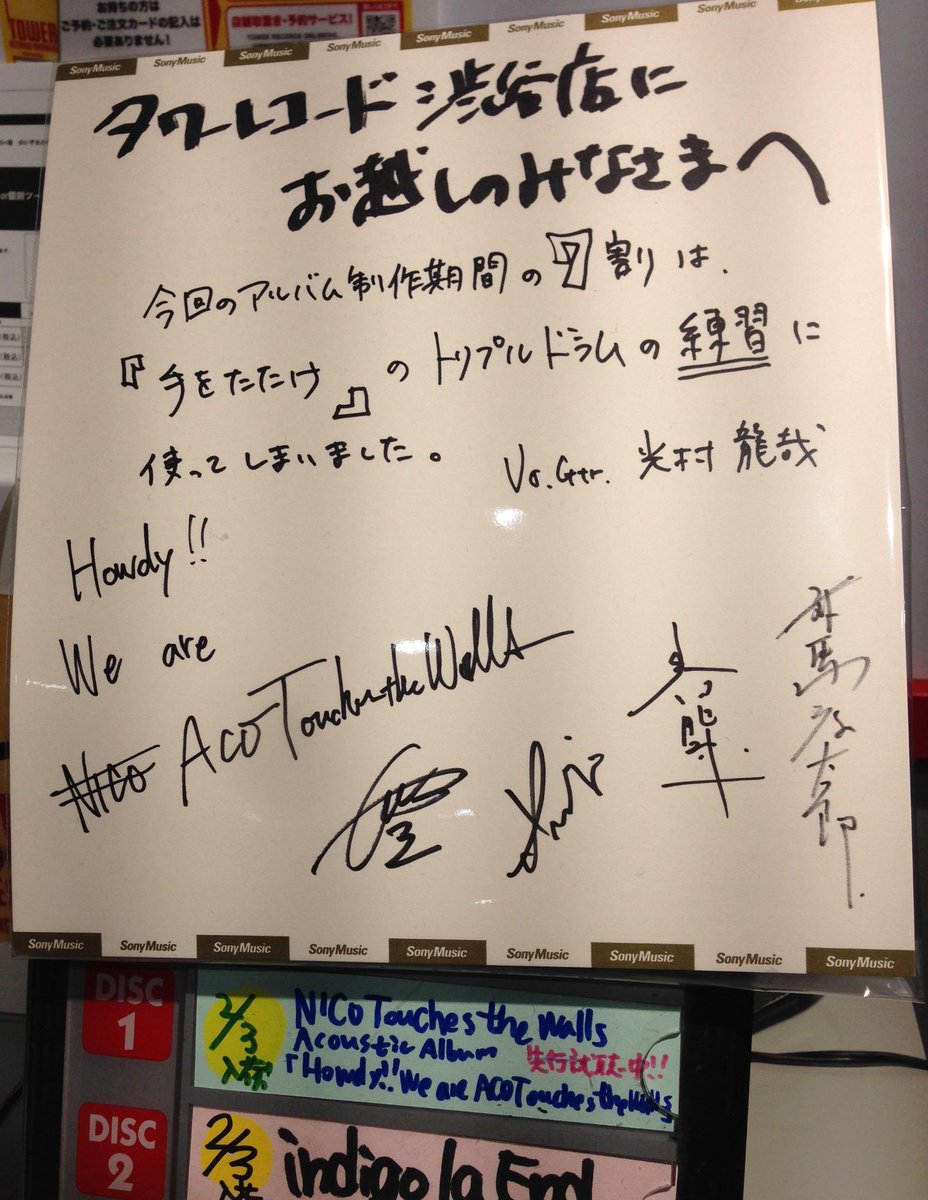 お持ちの方は
ご予約・ご注文カードの記入は
必要ありません!
店舗取置き・予約サービス!
TOWER RECORDS ONLINE
TOWER
SonyMusic SonyMusic SonyMusic SonyMusic SonyMusic SonyMusic SonyMusic SonyMusic SonyMusic
タワーレコード渋谷店に
お越しのみなさまへ
今回のアルバム制作期間の7割は、
『手をたたけ』のトリプルドラムの練習に
使ってしまいました。
Vo.Gtr. 光村龍哉
Howdy!!
We are
NICO ACO Touches the Walls
SonyMusic SonyMusic SonyMusic SonyMusic SonyMusic SonyMusic SonyMusic SonyMusic SonyMusic
DISC 1
2/3 入荷
NICO Touches the Walls
Acoustic Album 先行試聴中!!
「Howdy!! We are ACO Touches the Walls
DISC 2
2/3
indigo la End